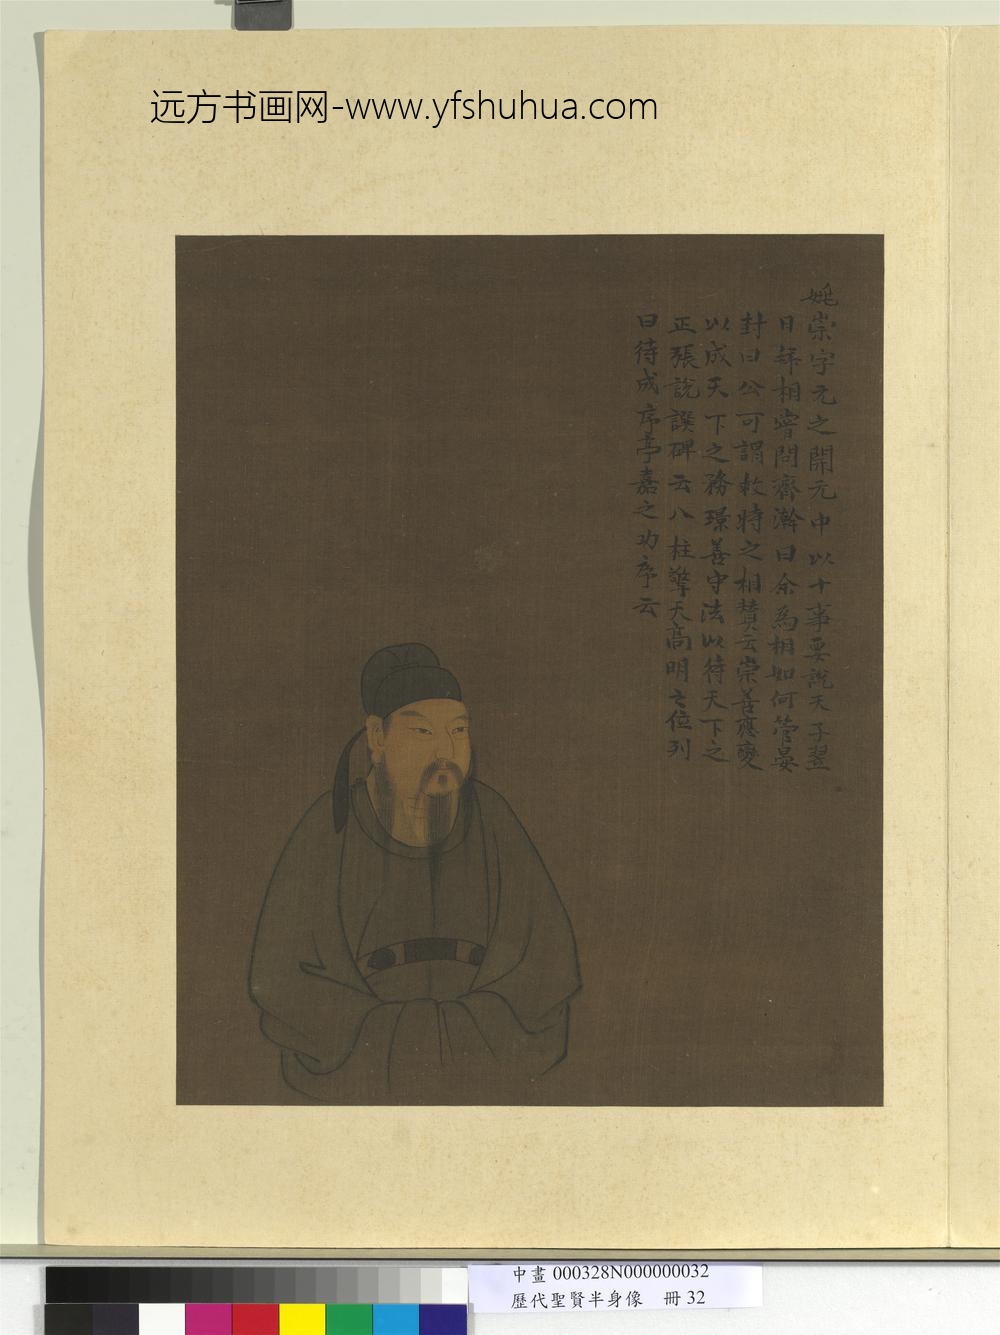 远方书画网-www.yfshuhua.com
姚崇字元之開元中以十事要說天子翌
日拜相嘗問齊澣曰余為相如何管晏
封曰公可謂救時之相賛云崇善應變
以成天下之務璟善守法以待天下之
正張說譔碑云八柱擎天高明之位列
曰待成序亭嘉之功序云
中畫 000328N000000032
歷代聖賢半身像 冊 32